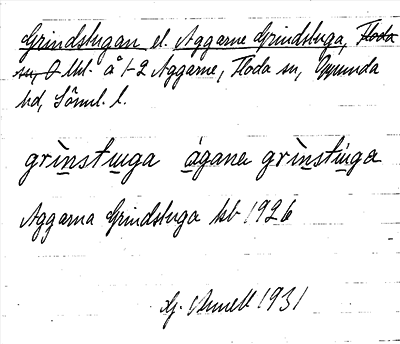 Grindstugan el. Aggarne Grindstuga, Floda
sn, O lht. å 1-2 Aggarne, Floda sn, Oppunda
hd, Söml. l.
grìnstuga àgana grìnstùga
Aggarna Grindstuga kb 1926
1931